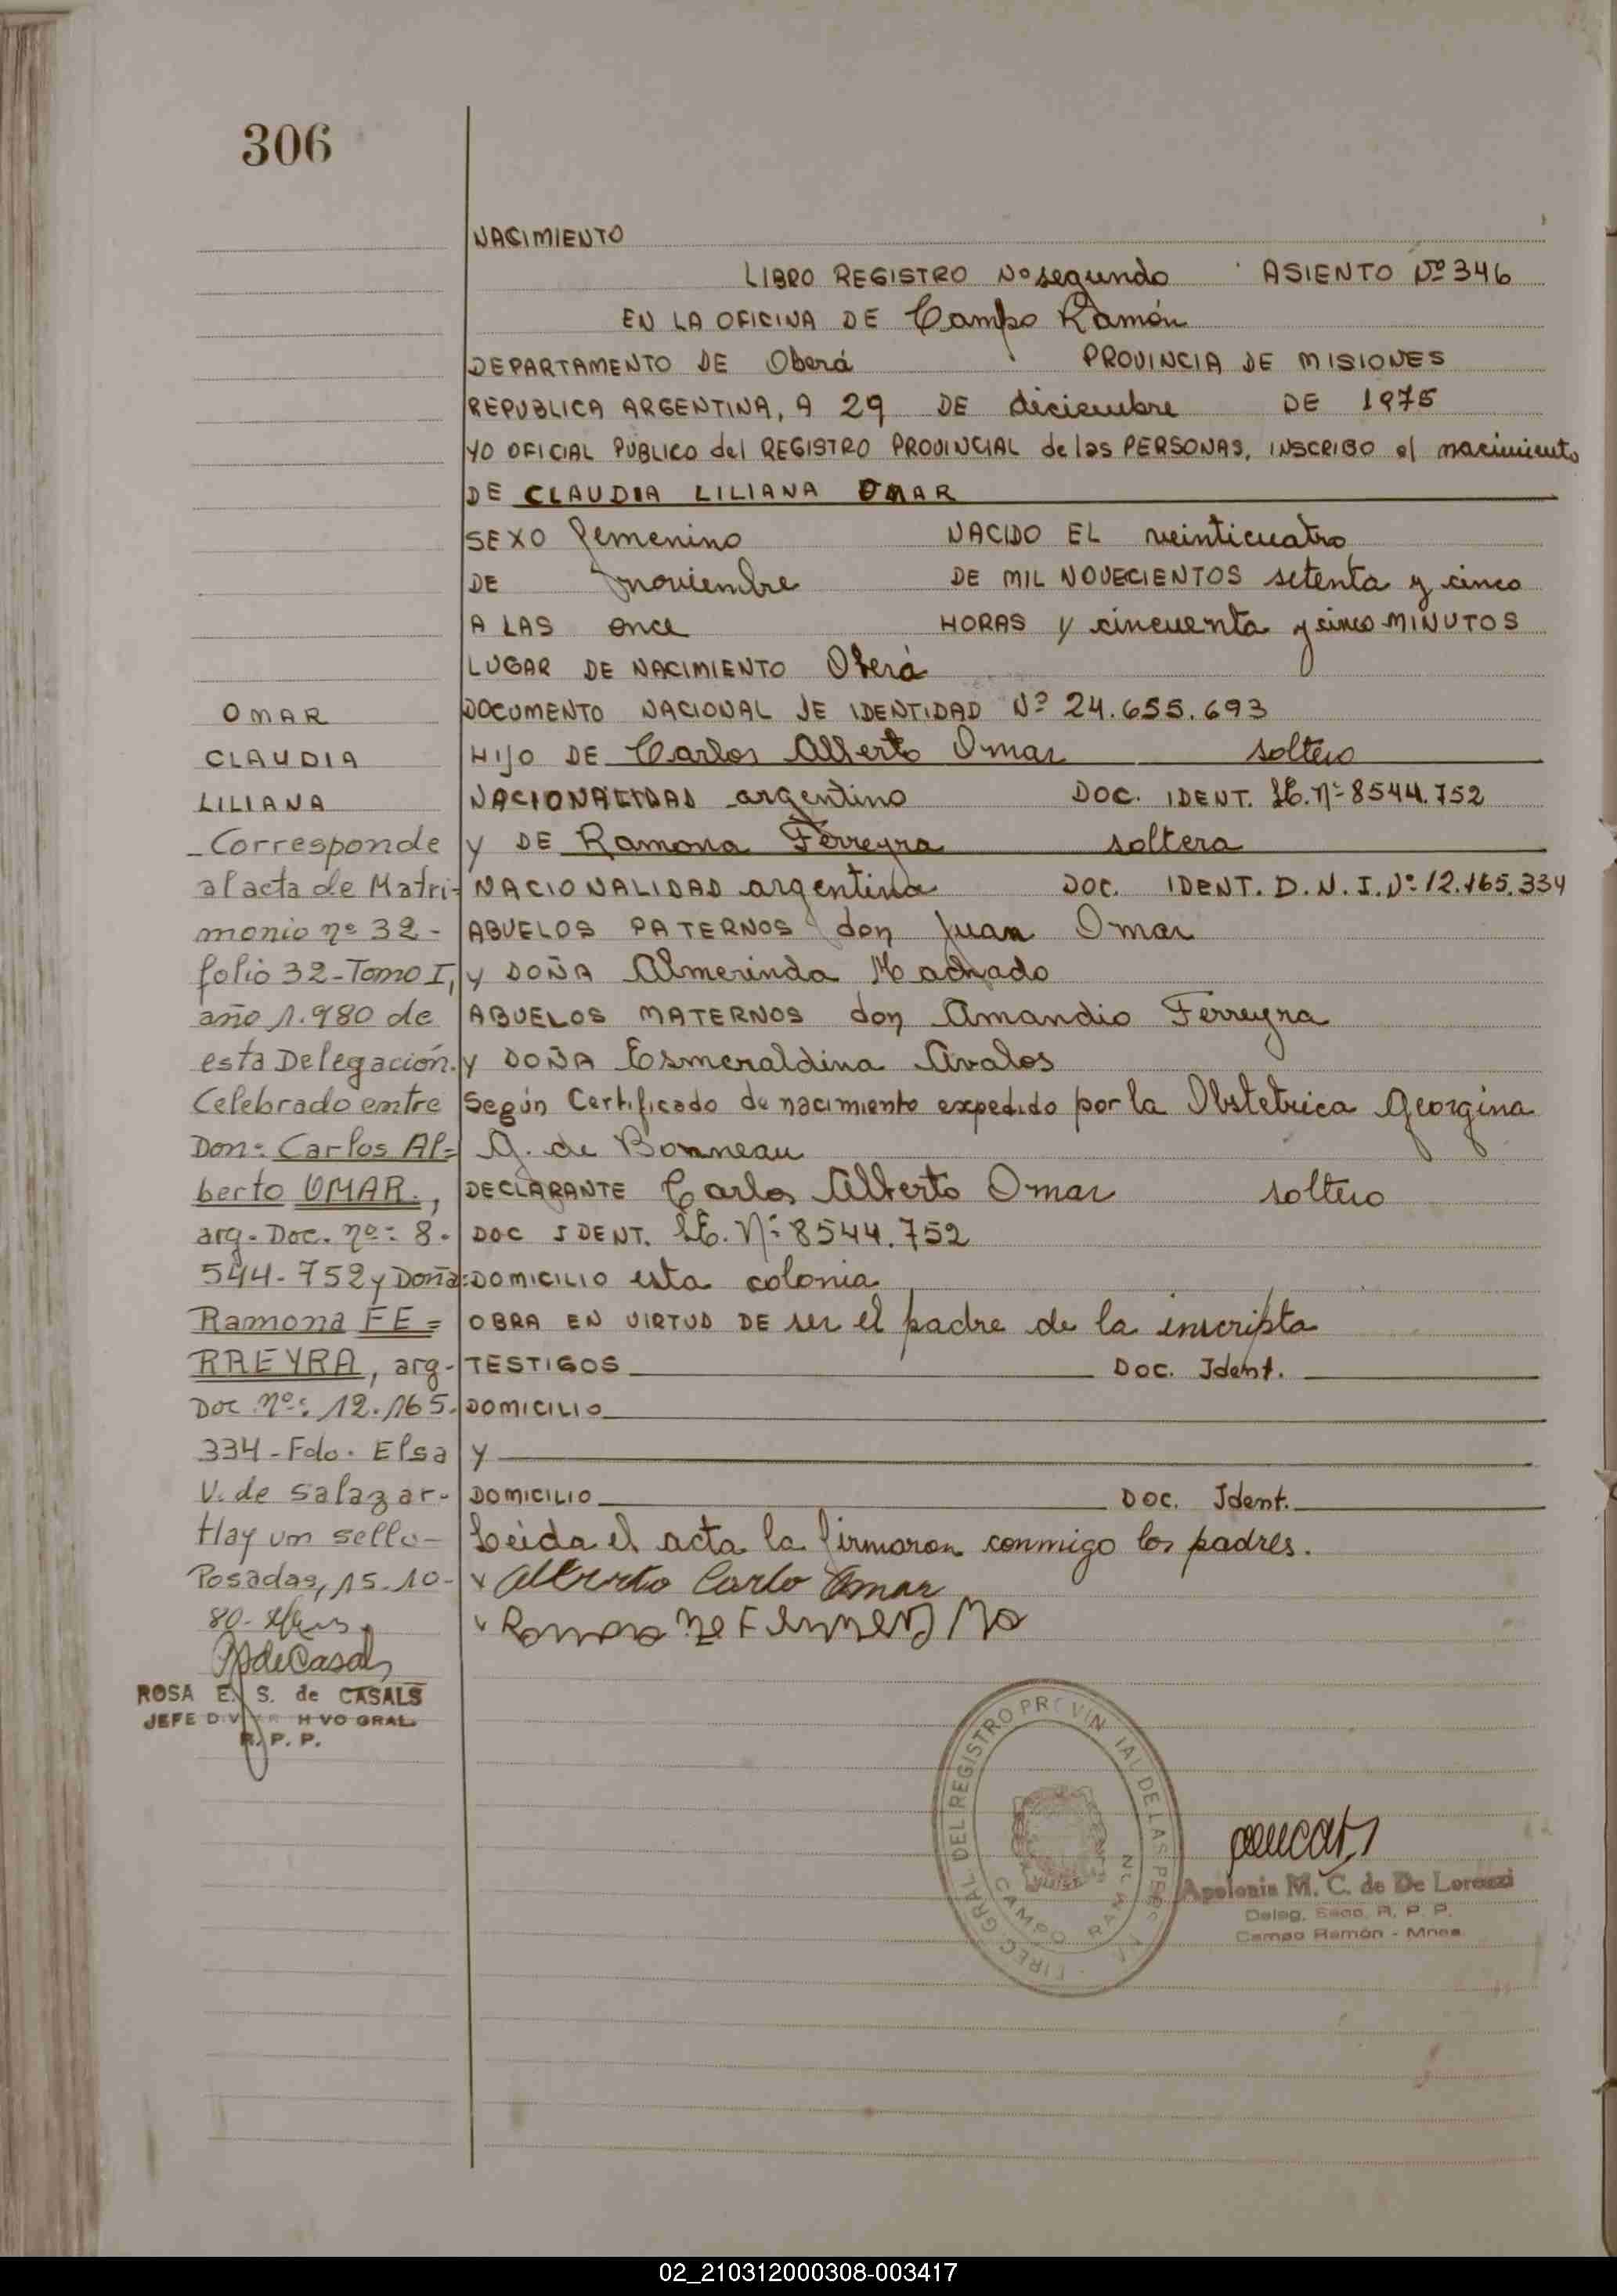 306
NACIMIENTO
LIBRO REGISTRO Nº segundo ASIENTO Nº 346
EN LA OFICINA DE Campo Ramón
DEPARTAMENTO DE Oberá PROVINCIA DE MISIONES
REPUBLICA ARGENTINA, A 29 DE diciembre DE 1975
YO OFICIAL PUBLICO del REGISTRO PROVINCIAL de las PERSONAS, INSCRIBO el nacimiento
DE CLAUDIA LILIANA OMAR
SEXO femenino NACIDO EL veinticuatro
DE noviembre DE MIL NOVECIENTOS setenta y cinco
A LAS once HORAS y cincuenta y cinco MINUTOS
LUGAR DE NACIMIENTO Oberá
DOCUMENTO NACIONAL DE IDENTIDAD Nº 24.655.693
HIJO DE Carlos Alberto Omar soltero
NACIONALIDAD argentino DOC. IDENT. LE. Nº 8544.752
y DE Ramona Ferreyra soltera
NACIONALIDAD argentina DOC. IDENT. D.N.I. Nº 12.165.334
ABUELOS PATERNOS don Juan Omar
y DOÑA Almerinda Machado
ABUELOS MATERNOS don Amandio Ferreyra
y DOÑA Esmeraldina Avalos
Según Certificado de nacimiento expedido por la Obstetrica Georgina
G. de Bonneau
DECLARANTE Carlos Alberto Omar soltero
DOC IDENT. LE. Nº 8544.752
DOMICILIO esta colonia
OBRA EN VIRTUD DE ser el padre de la inscripta
TESTIGOS Doc. Ident.
DOMICILIO
y
DOMICILIO Doc. Ident.
Leída el acta la firmaron conmigo los padres.
Alberto Carlo Omar
OMAR
CLAUDIA
LILIANA
_Corresponde
al acta de Matri-
monio nº 32-
folio 32-Tomo I,
año 1.980 de
esta Delegación.
Celebrado entre
Don: Carlos Al=
berto OMAR.,
arg. Doc. nº: 8.
544-752 y Doña:
Ramona FE=
RREYRA, arg-
Doc nº: 12.165.
334-Fdo. Elsa
V. de Salazar-
Hay un sello-
Posadas, 15.10-
80-
ROSA E. S. de CASALS
JEFE DIV HIVO GRAL.
R. P. P.
DIREC. GRAL. DEL REGISTRO PROVINCIAL DE LAS PERSONAS
CAMPO RAMON
Apolonia M. C. de De Lorenzi
Deleg. Secc. R. P. P.
Campo Ramón - Mnes.
02_210312000308-003417